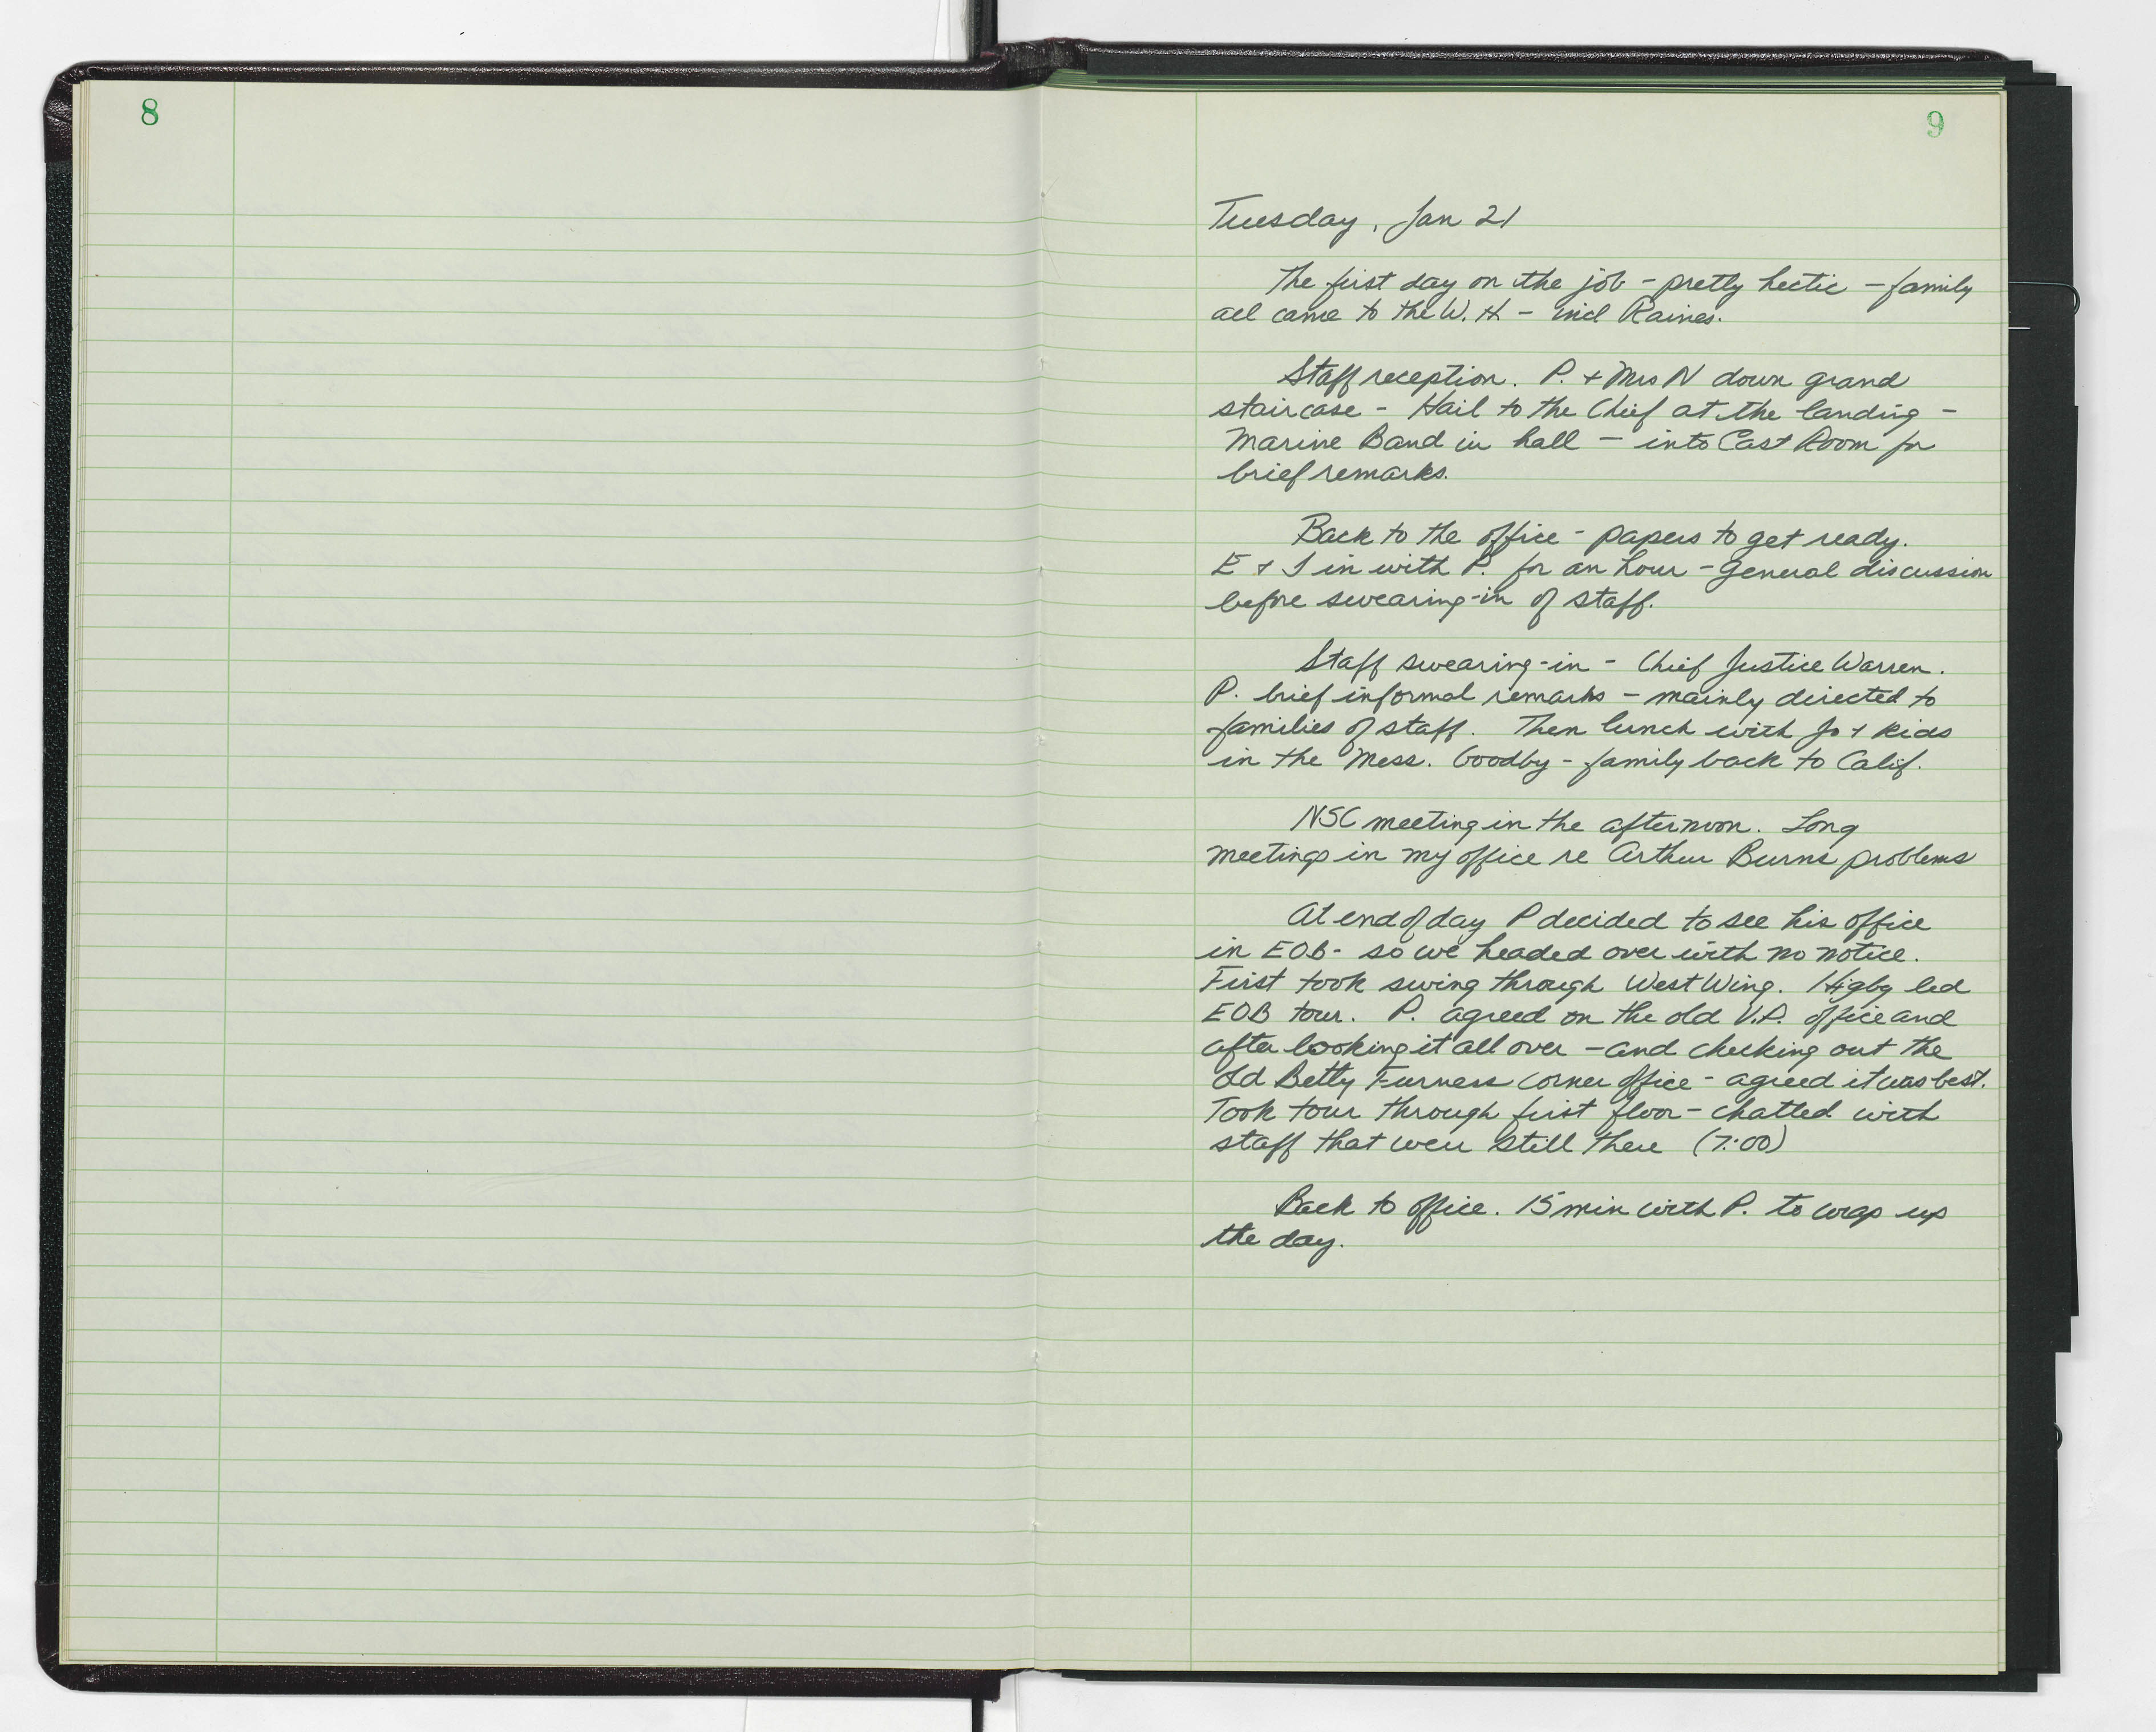 8
9
Tuesday, Jan 21
The first day on the job - pretty hectic - family
all came to the W.H - incl Raines.
Staff reception. P. + Mrs N down grand
staircase - Hail to the Chief at the landing -
Marine Band in hall - into East Room for
brief remarks.
Back to the office - papers to get ready.
E + I in with P. for an hour - general discussion
before swearing-in of staff.
Staff swearing-in - Chief Justice Warren.
P. brief informal remarks - mainly directed to
families of staff. Then lunch with Jo + kids
in the Mess. Goodby - family back to Calif.
NSC meeting in the afternoon. Long
meetings in my office re Arthur Burns problems
At end of day P decided to see his office
in EOB - so we headed over with no notice.
First took swing through West Wing. Higby led
EOB tour. P. agreed on the old V.P. office and
after looking it all over - and checking out the
old Betty Furness corner office - agreed it was best.
Took tour through first floor - chatted with
staff that were still there (7:00)
Back to office. 15 min with P. to wrap up
the day.